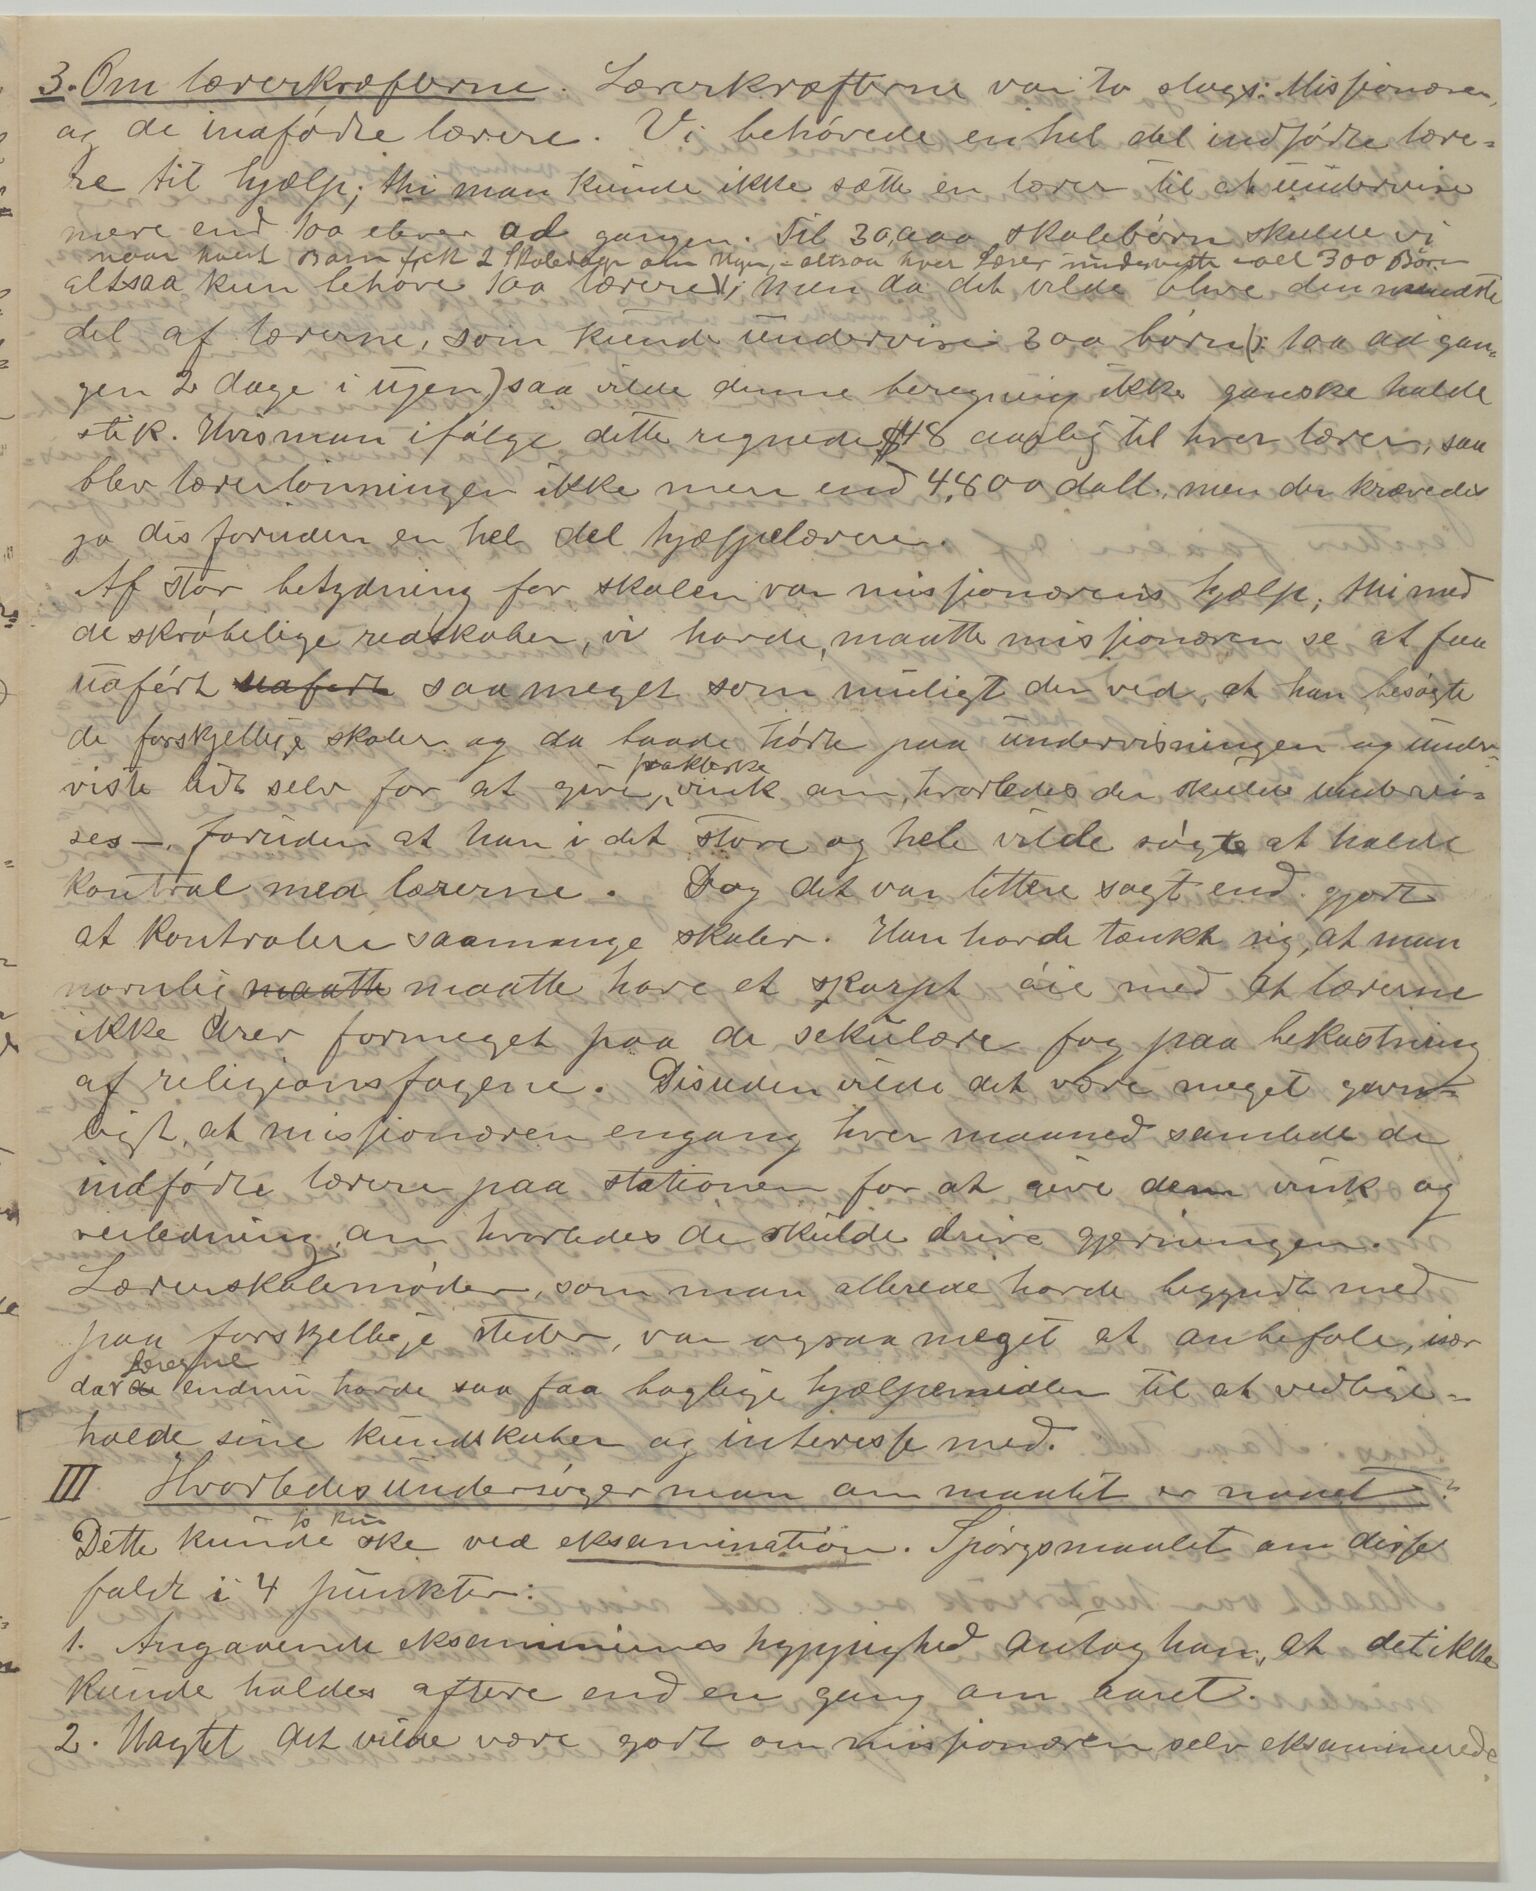 3. Om lærerkræfterne. Lærerkræfterne var to slags: Missionæren,
og de indfødte lærere. Vi behøvede en hel del indfødte lære=
re til hjælp; thi man kunde ikke sætte en lærer til at undervise
mere end 100 elever ad gangen. Til 30,000 skolebørn skulde vi
naar hvert Barn fik 2 Skoledage om Ugen, - altsaa hver Lærer underviste - all 300 Børn
altsaa kun behøve 100 lærere); men da det vilde blive den mindste
del af lærerne, som kunde undervise 300 børn (: 100 ad gan=
gen 2 dage i ugen) saa vilde denne beregning ikke ganske holde
stik. Hvis man ifølge dette regnede $48 aarlig til hver lærer, saa
blev lærerlønningen ikke mere end 4,800 doll., men der krævedes
jo desforuden en hel del hjælpelærere.
Af stor betydning for skolen var missionærens hjælp; thi med
de skrøbelige redskaber, vi havde, maatte missionæren se at faa
udført udført saa meget som muligt der ved, at han besøgte
de forskjellige skoler og da baade hørte paa undervisningen og under=
viste lidt selv for at give praktiske vink om, hvorledes der skulde undervi=
ses -, foruden at han i det store og hele vilde søgte at holde
kontrol med lærerne. Dog det var lettere sagt end gjort
at kontrolere saamange skoler. Han havde tænkt sig, at man
navnlig maatte maatte have et skarpt øie med at lærerne
ikke drev formeget paa de sekulære fag paa bekostning
af religionsfagene. Desuden vilde det være meget gavn=
ligt, at missionæren engang hver maaned samlede de
indførte lærere paa stationen for at give dem vink og
veiledning, om hvorledes de skulde drive gjerningen.
Lærerskolemøder, som man allerede havde begyndt med
paa forskjellige steder, var ogsaa meget at anbefale, især
da de lærerne endnu havde saa faa boglige hjælpemidler til at vedlige=
holde sine kundskaber og interesse med.
III Hvorledes undersøger man om maalet er naaet?
Dette kunde jo kun ske ved eksamination. Spørgsmaalet om disse
faldt i 4 punkter:
1. Angaaende eksaminernes hyppighed antog han, at det ikke
kunde holdes oftere end en gang om aaret.
2. Uagtet det vilde være godt om missionæren selv eksaminerede